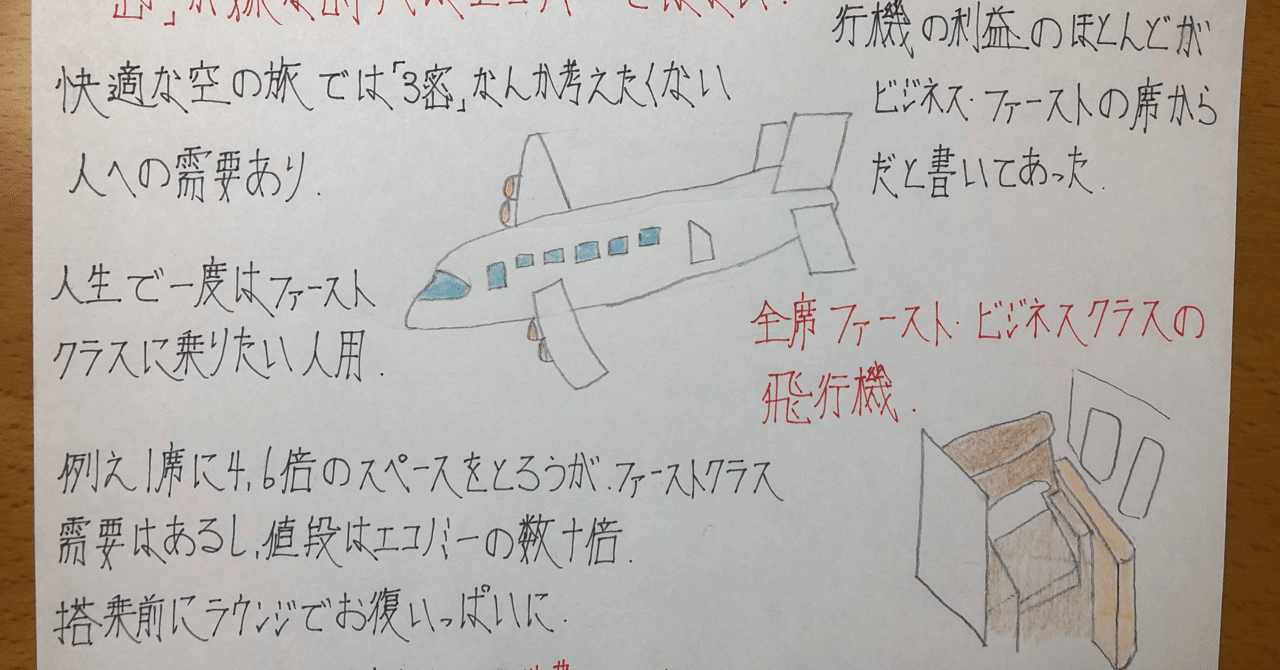 快適な空の旅では「3密」なんか考えたくない
人への需要あり.
行機の利益のほとんどが
ビジネス・ファーストの席から
だと書いてあった.
人生で一度はファースト
クラスに乗りたい人用.
全席ファースト・ビジネスクラスの
飛行機.
例え1席に4,6倍のスペースをとろうが.ファーストクラス
需要はあるし,値段はエコノミーの数十倍.
搭乗前にラウンジでお復いっぱいに.